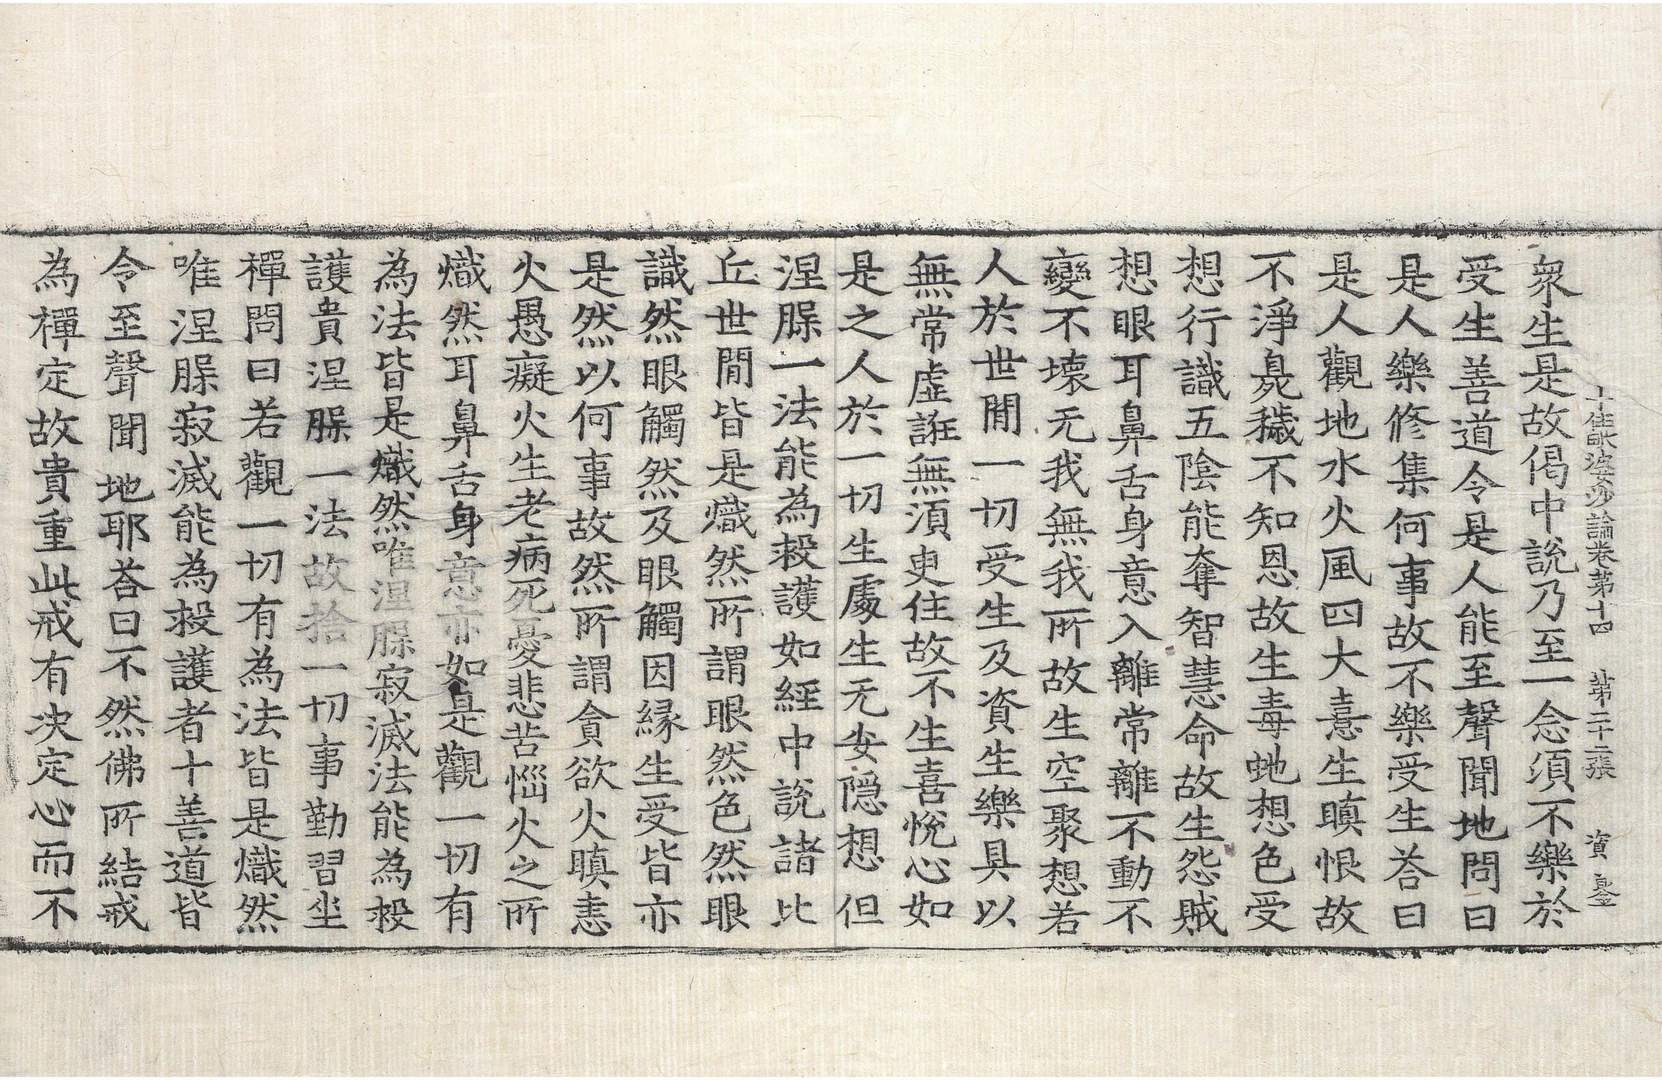 十住毗婆沙論卷第十四　第二十二張　資　鋻
衆生是故偈中說乃至一念須不樂於
受生善道令是人能至聲聞地問曰
是人樂修集何事故不樂受生荅曰
是人觀地水火風四大憙生瞋恨故
不淨臰穢不知恩故生毒虵想色受
想行識五陰能奪智慧命故生怨賊
想眼耳鼻舌身意入離常離不動不
變不壞无我無我所故生空聚想若
人於世閒一切受生及資生樂具以
無常虛誑無須臾住故不生喜悅心如
是之人於一切生處生无安隱想但
涅槃一法能為救護如經中說諸比
丘世閒皆是熾然所謂眼然色然眼
識然眼觸然及眼觸因緣生受皆亦
是然以何事故然所謂貪欲火瞋恚
火愚癡火生老病死憂悲苦惱火之所
熾然耳鼻舌身意亦如是觀一切有
為法皆是熾然唯涅槃寂滅法能為救
護貴涅槃一法故捨一切事勤習坐
禪問曰若觀一切有為法皆是熾然
唯涅槃寂滅能為救護者十善道皆
令至聲聞地耶荅曰不然佛所結戒
為禪定故貴重此戒有決定心而不